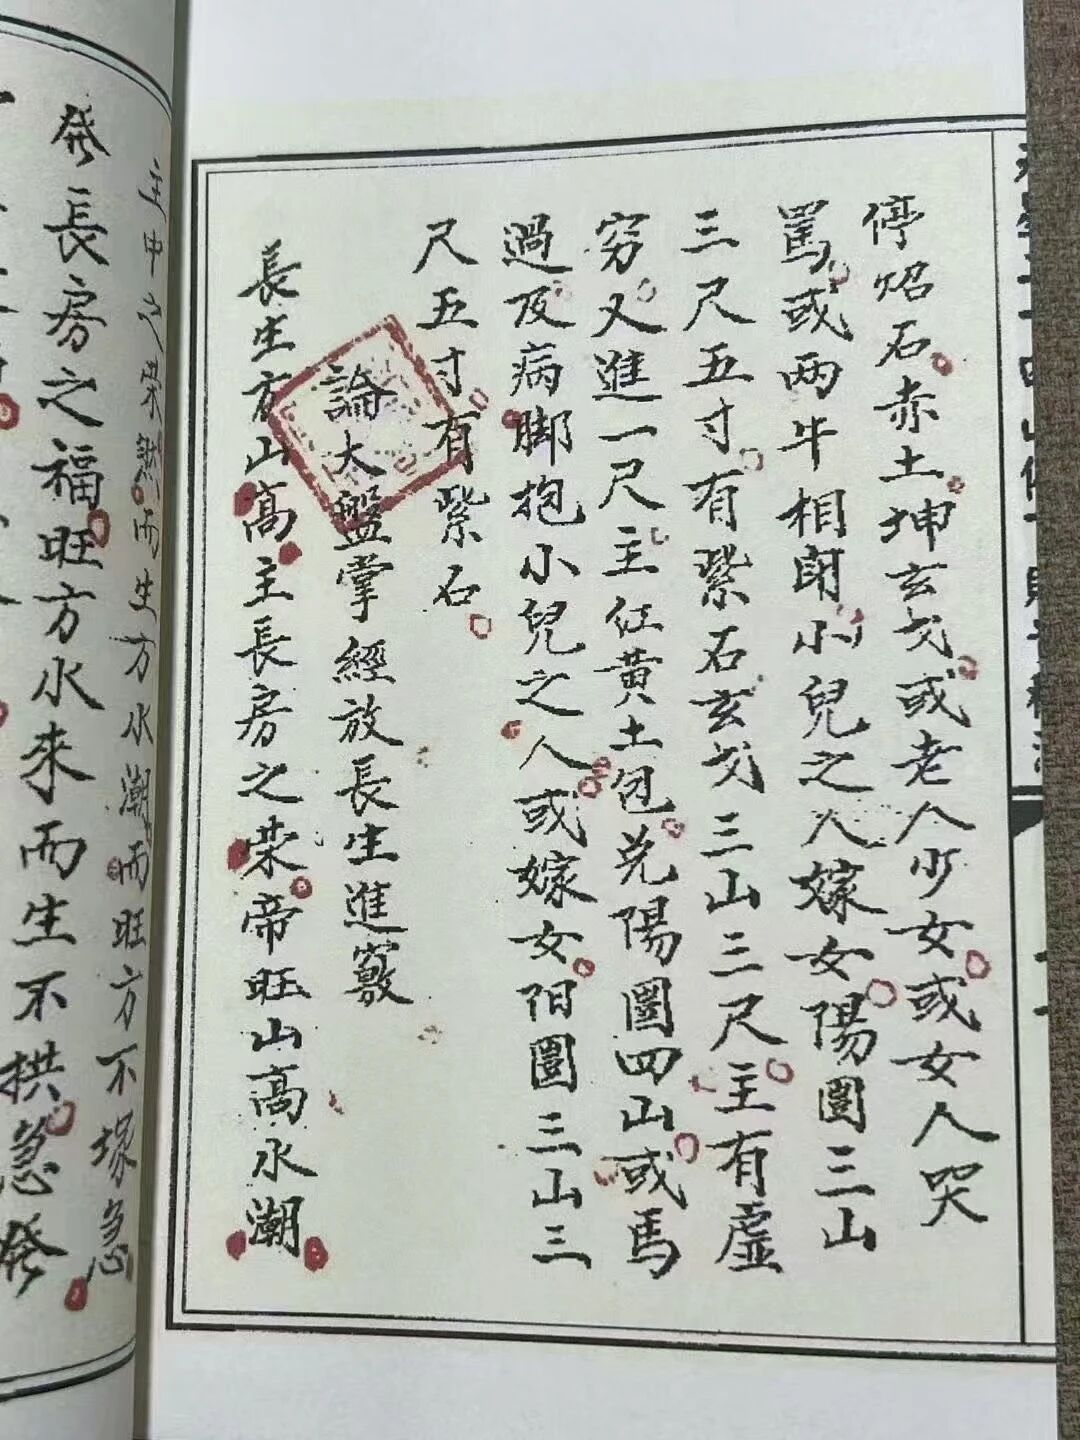 停炤石赤土坤玄戈或老人少女或女人哭
罵或两牛相閗小兒之人嫁女陽圖三山
三尺五寸有紫石玄戈三山三尺主有虚
穷又進一尺主红黄土包兑陽圖四山或馬
過及病脚抱小兒之人或嫁女阳圖三山三
尺五寸有紫石
論太盤掌經放長生進竅
長生方山高主長房之荣帝旺山高水潮
主中之荣然而生方水潮而旺方不塚急
發長房之福旺方水來而生不拱急發